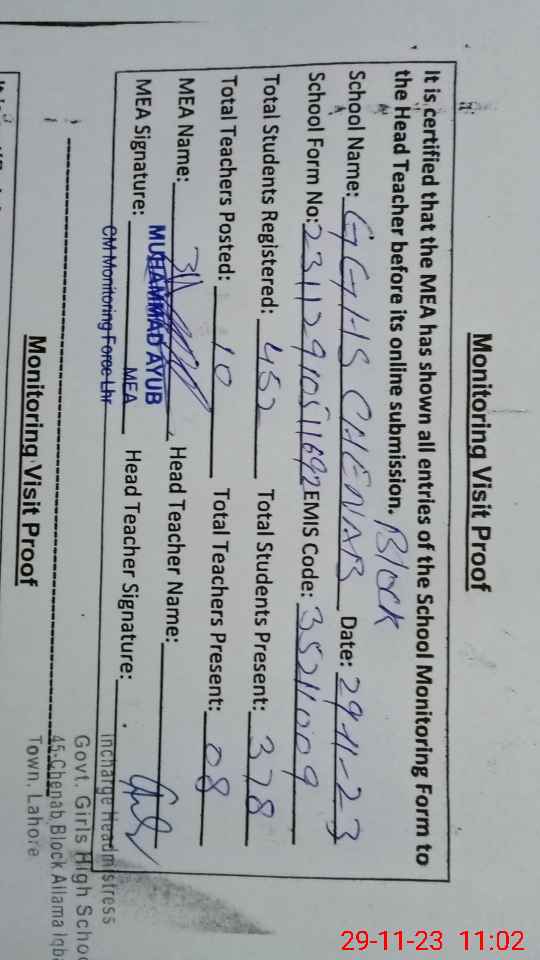 Monitoring Visit Proof
It is certified that the MEA has shown all entries of the School Monitoring Form to
the Head Teacher before its online submission.
Block
School Name: GGHS CHENAB Date: 29-11-23
School Form No: 23112910511692 EMIS Code: 35211009
Total Students Registered: 452 Total Students Present: 378
Total Teachers Posted: 10 Total Teachers Present: 08
MEA Name: Head Teacher Name:
MUHAMMAD AYUB
MEA Signature: MEA Head Teacher Signature:
CM Monitoring Force Lhr
Incharge Headmistress
Govt. Girls High Schoo
45-Chenab Block Allama Iqb
Town, Lahore
Monitoring Visit Proof
29-11-23 11:02